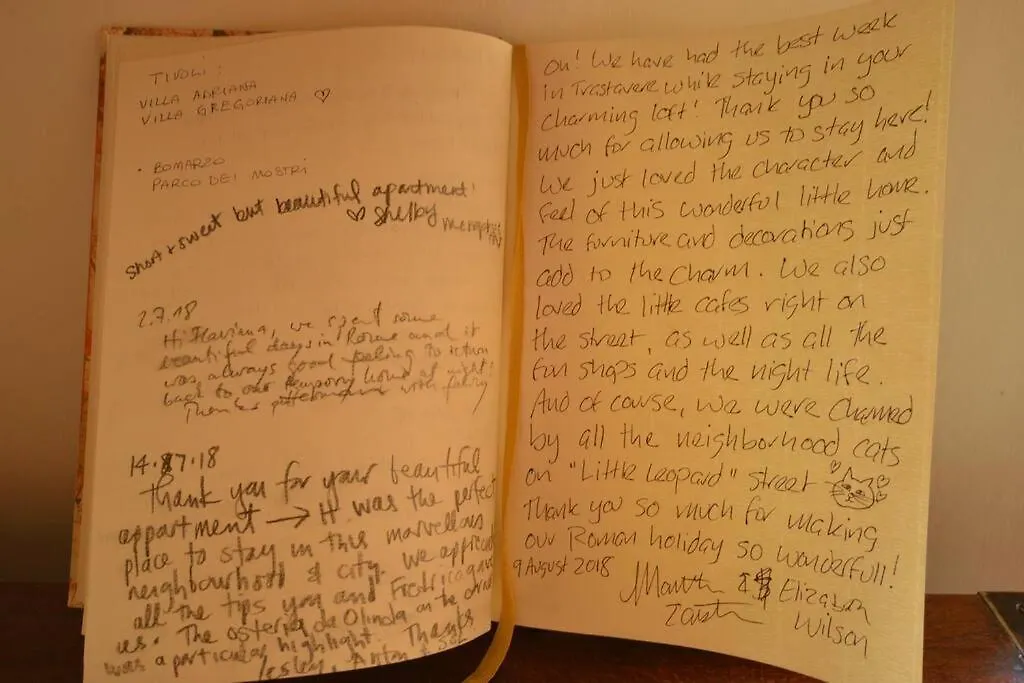 TIVOLI:
VILLA ADRIANA
VILLA GREGORIANA ♡
• BOMARZO
PARCO DEI MOSTRI
Short & sweet but beautiful apartment!
♡ Shelby
2.7.18
Hi Flaviana, we spent some
beautiful days in Rome and it
was always good feeling to return
back to our temporary home at night!
14.7.18
Thank you for your beautiful
appartment → It was the perfect
place to stay in this marvellous
neighbourhood & city. We
all the tips you and
us. The osteria da Olinda on the
was a particular highlight. Thanks
Lesley, Anton &
Oh! We have had the best week
in Trastavere while staying in your
charming loft! Thank you so
much for allowing us to stay here!
We just loved the character and
feel of this wonderful little home.
The furniture and decorations just
add to the charm. We also
loved the little cafes right on
the street, as well as all the
fun shops and the night life.
And of course, we were charmed
by all the neighborhood cats
on "Little Leopard" street
Thank you so much for making
our Roman holiday so wonderfull!
9 August 2018
Elizabeth
Wilson